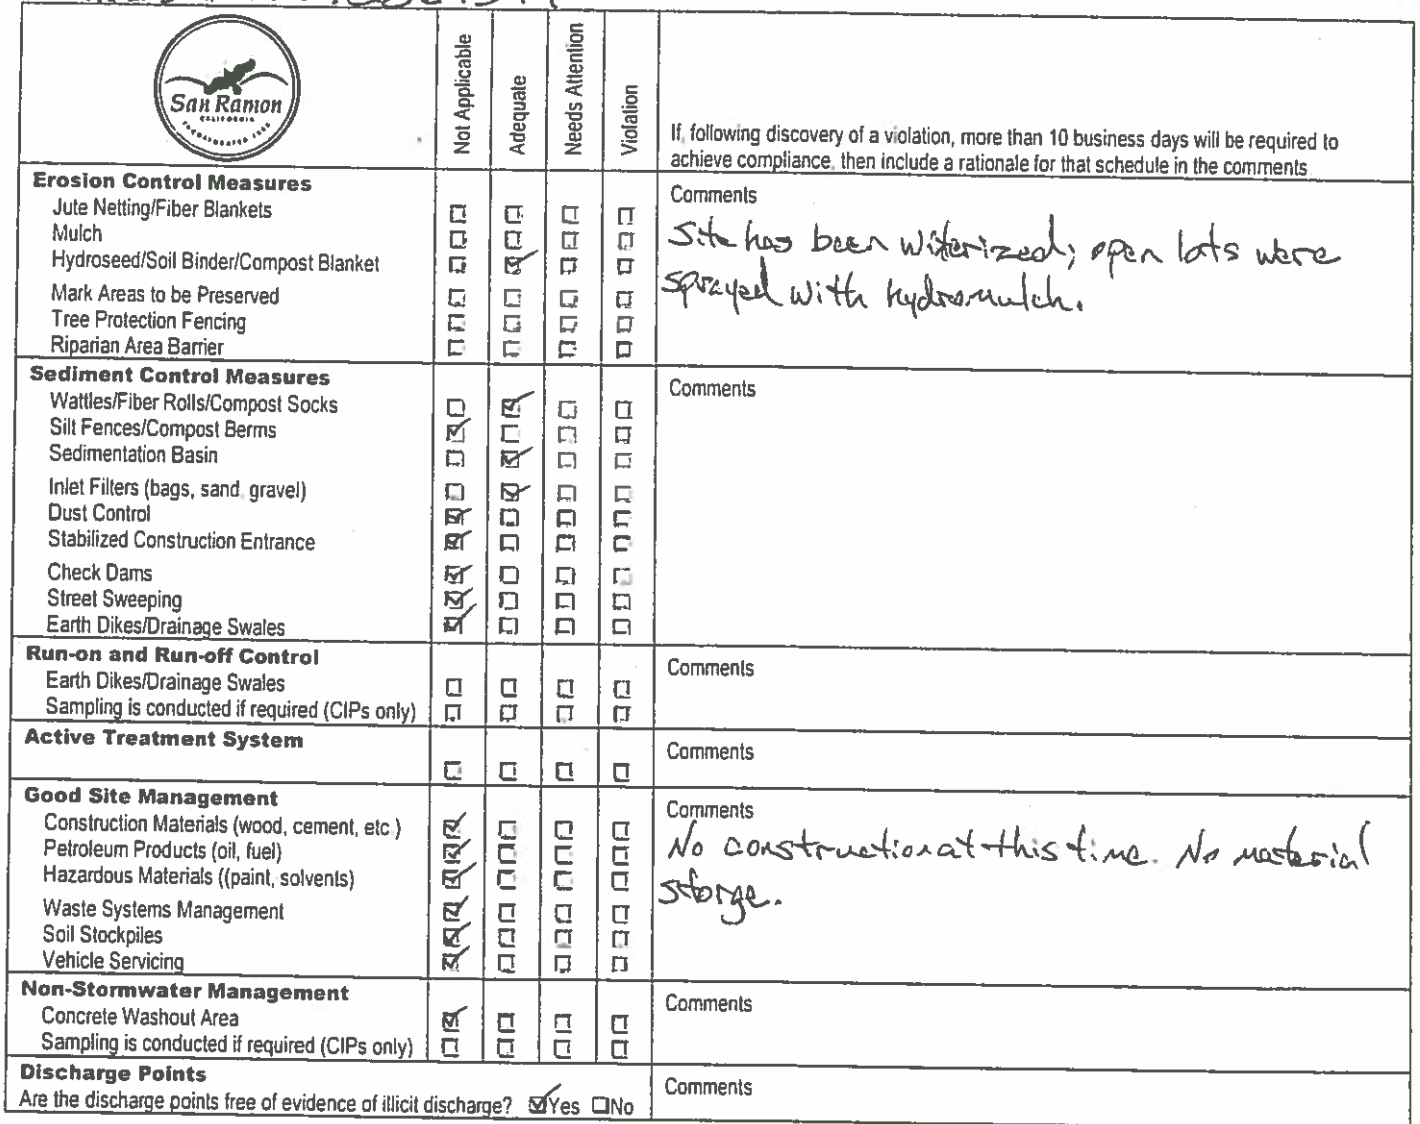 San Ramon
CALIFORNIA
INCORPORATED 1983
Not Applicable
Adequate
Needs Attention
Violation
If, following discovery of a violation, more than 10 business days will be required to
achieve compliance, then include a rationale for that schedule in the comments
Erosion Control Measures
Comments
Jute Netting/Fiber Blankets
Mulch
Hydroseed/Soil Binder/Compost Blanket
Mark Areas to be Preserved
Tree Protection Fencing
Riparian Area Barrier
Site has been witerized; open lots were
sprayed with hydromulch.
Sediment Control Measures
Comments
Wattles/Fiber Rolls/Compost Socks
Silt Fences/Compost Berms
Sedimentation Basin
Inlet Filters (bags, sand, gravel)
Dust Control
Stabilized Construction Entrance
Check Dams
Street Sweeping
Earth Dikes/Drainage Swales
Run-on and Run-off Control
Comments
Earth Dikes/Drainage Swales
Sampling is conducted if required (CIPs only)
Active Treatment System
Comments
Good Site Management
Comments
Construction Materials (wood, cement, etc.)
Petroleum Products (oil, fuel)
Hazardous Materials ((paint, solvents)
Waste Systems Management
Soil Stockpiles
Vehicle Servicing
No construction at this time. No material
storge.
Non-Stormwater Management
Comments
Concrete Washout Area
Sampling is conducted if required (CIPs only)
Discharge Points
Comments
Are the discharge points free of evidence of illicit discharge? Yes No